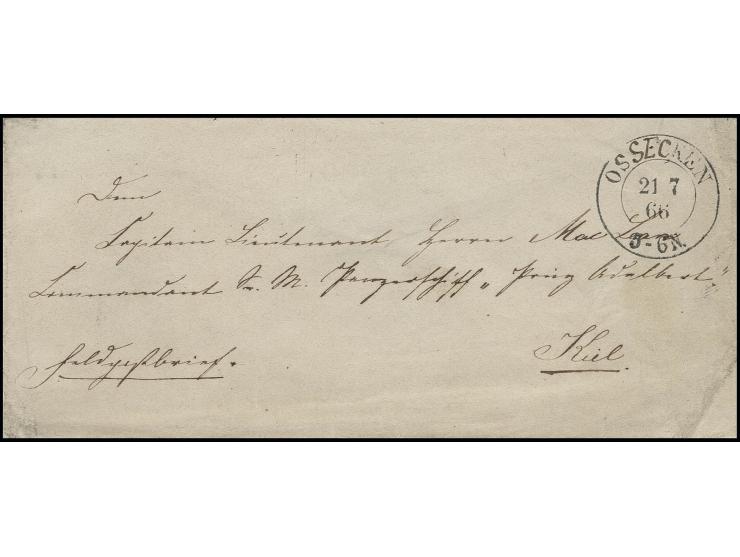 OSSECKEN
21 7
66
5-6N.
Dem
Capitain Lieutenant Herrn Mac Lean
Commandant Sr. M. Panzerschiff „Prinz Adalbert“
Kiel.
Feldpostbrief.